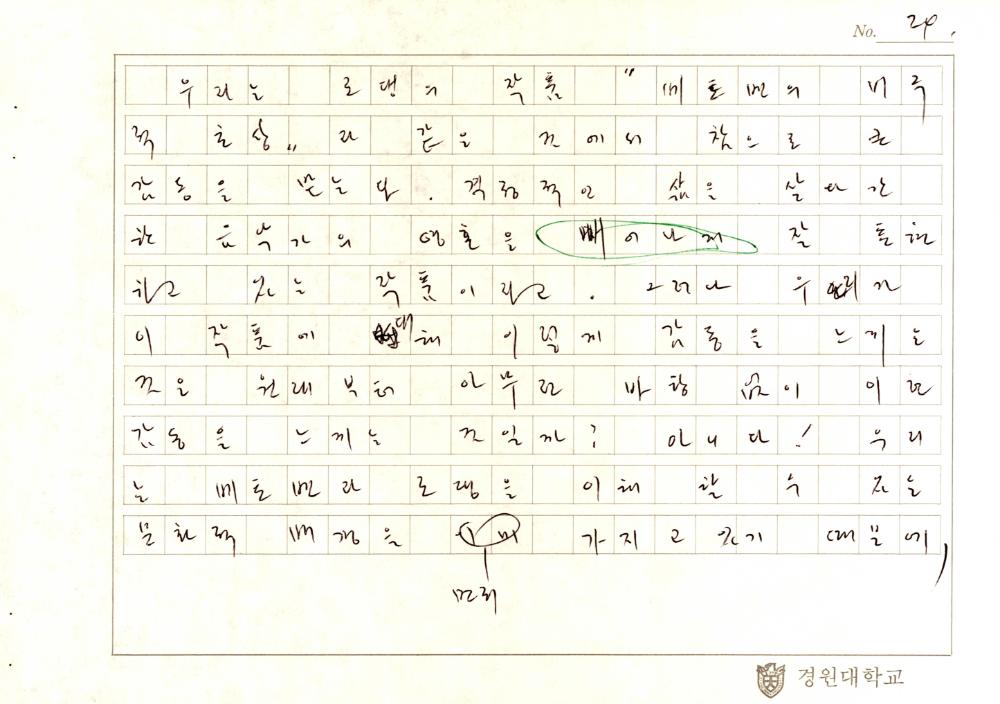 No. 24.
우리는 로댕의 작품 "베토벤의 비극
적 초상" 라 같은 것에서 참으로 큰
감동을 받는다. 격정적인 삶을 살다 간
한 음악가의 영혼을 빼어나게 잘 표현
하고 있는 작품이라고. 그러나 우리가
이 작품에 대해 이렇게 감동을 느끼는
것은 원래부터 아무런 바탕 없이 이런
감동을 느끼는 것일까? 아니다! 우리
는 베토벤과 로댕을 이해할 수 있는
문화적 배경을 가지고 있기 때문에,
먼저
경원대학교